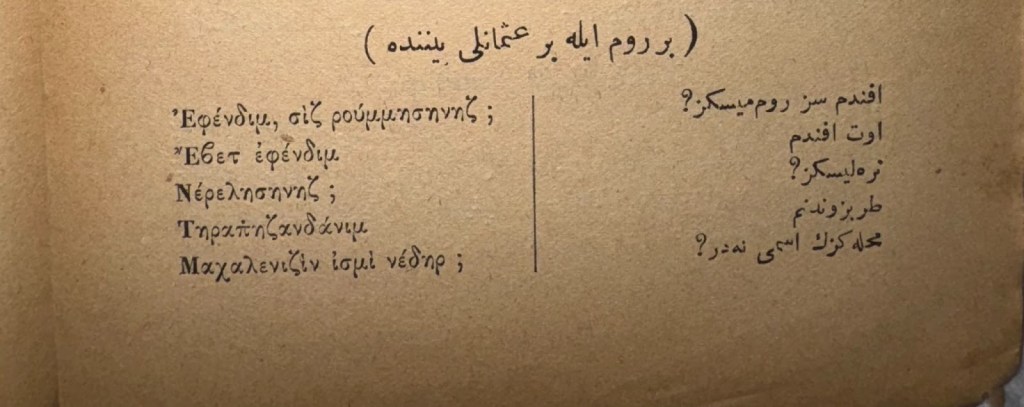 ( بر روم ايله بر عثمانلى بيننده )
Ἐφένδιμ, σὶζ ρούμμησηνηζ ;
Ἔβετ ἐφένδιμ
Νέρεληση​νηζ ;
Τηραπηζανδάνιμ
Μαχαλενιζὶν ἰσμὶ νέδηρ ;
افندم سز روم‌ميسكز؟
اوت افندم
نره‌ليسكز؟
طربزوندنم
محله‌كزك اسمى نه‌در؟